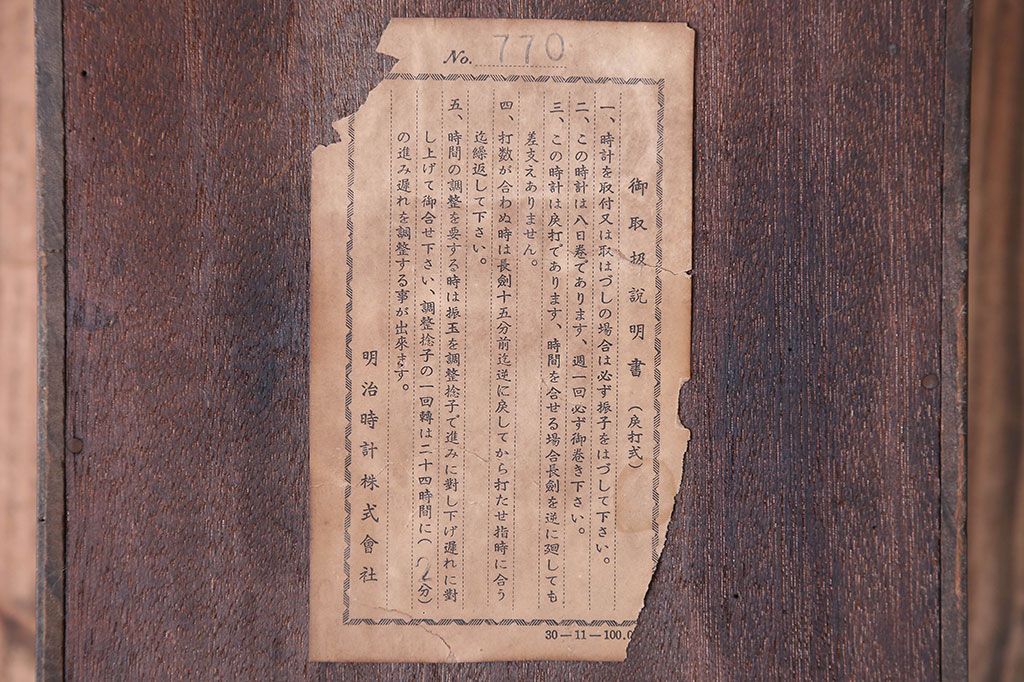 No. 770
御取扱說明書（戻打式）
一、時計を取付又は取はづしの場合は必ず振子をはづして下さい。
二、この時計は八日巻であります、週一回必ず御巻き下さい。
三、この時計は戻打であります、時間を合せる場合長劍を逆に廻しても
差支えありません。
四、打数が合わぬ時は長劍十五分前迄逆に戻してから打たせ指時に合う
迄繰返して下さい。
五、時間の調整を要する時は振玉を調整捻子で進みに對し下げ遅れに對
し上げて御合せ下さい、調整捻子の一回轉は二十四時間に（2分）
の進み遅れを調整する事が出來ます。
明治時計株式會社
30－11－100.0